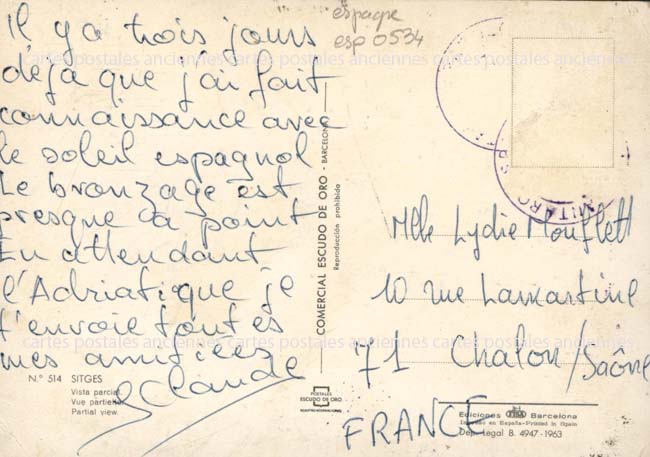 espagne
esp 0534
Il y a trois jours
déjà que j'ai fait
connaissance avec
le soleil espagnol
Le bronzage est
presque à point
En attendant
l'Adriatique je
t'envoie toutes
mes amitiées
Claude
cartes postales anciennes cartes postales anciennes cartes postales anciennes
cartes postales anciennes cartes postales anciennes cartes postales anciennes
N.º 514 SITGES
Vista parcial.
Vue partielle.
Partial view.
COMERCIAL ESCUDO DE ORO - BARCELONA
Reproducción prohibida
POSTALES
ESCUDO DE ORO
Mlle Lydie Mouflett
10 rue Lamartine
71 Chalon/Saône
FRANCE
Ediciones Barcelona
Impreso en España-Printed in Spain
Dep. Legal B. 4947-1963